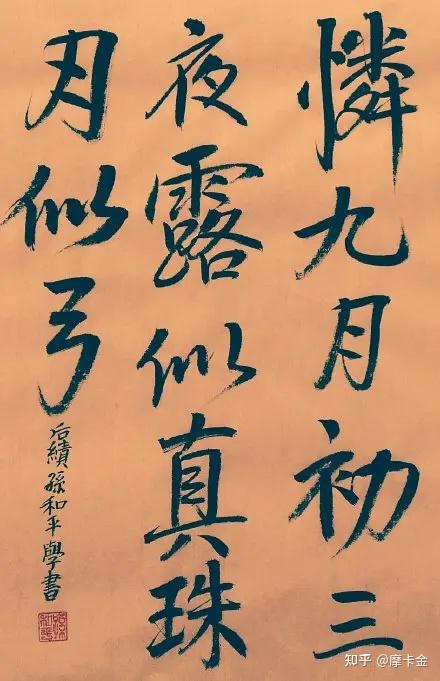 憐九月初三
夜露似真珠
月似弓
后績孫和平學書
知乎 @摩卡金